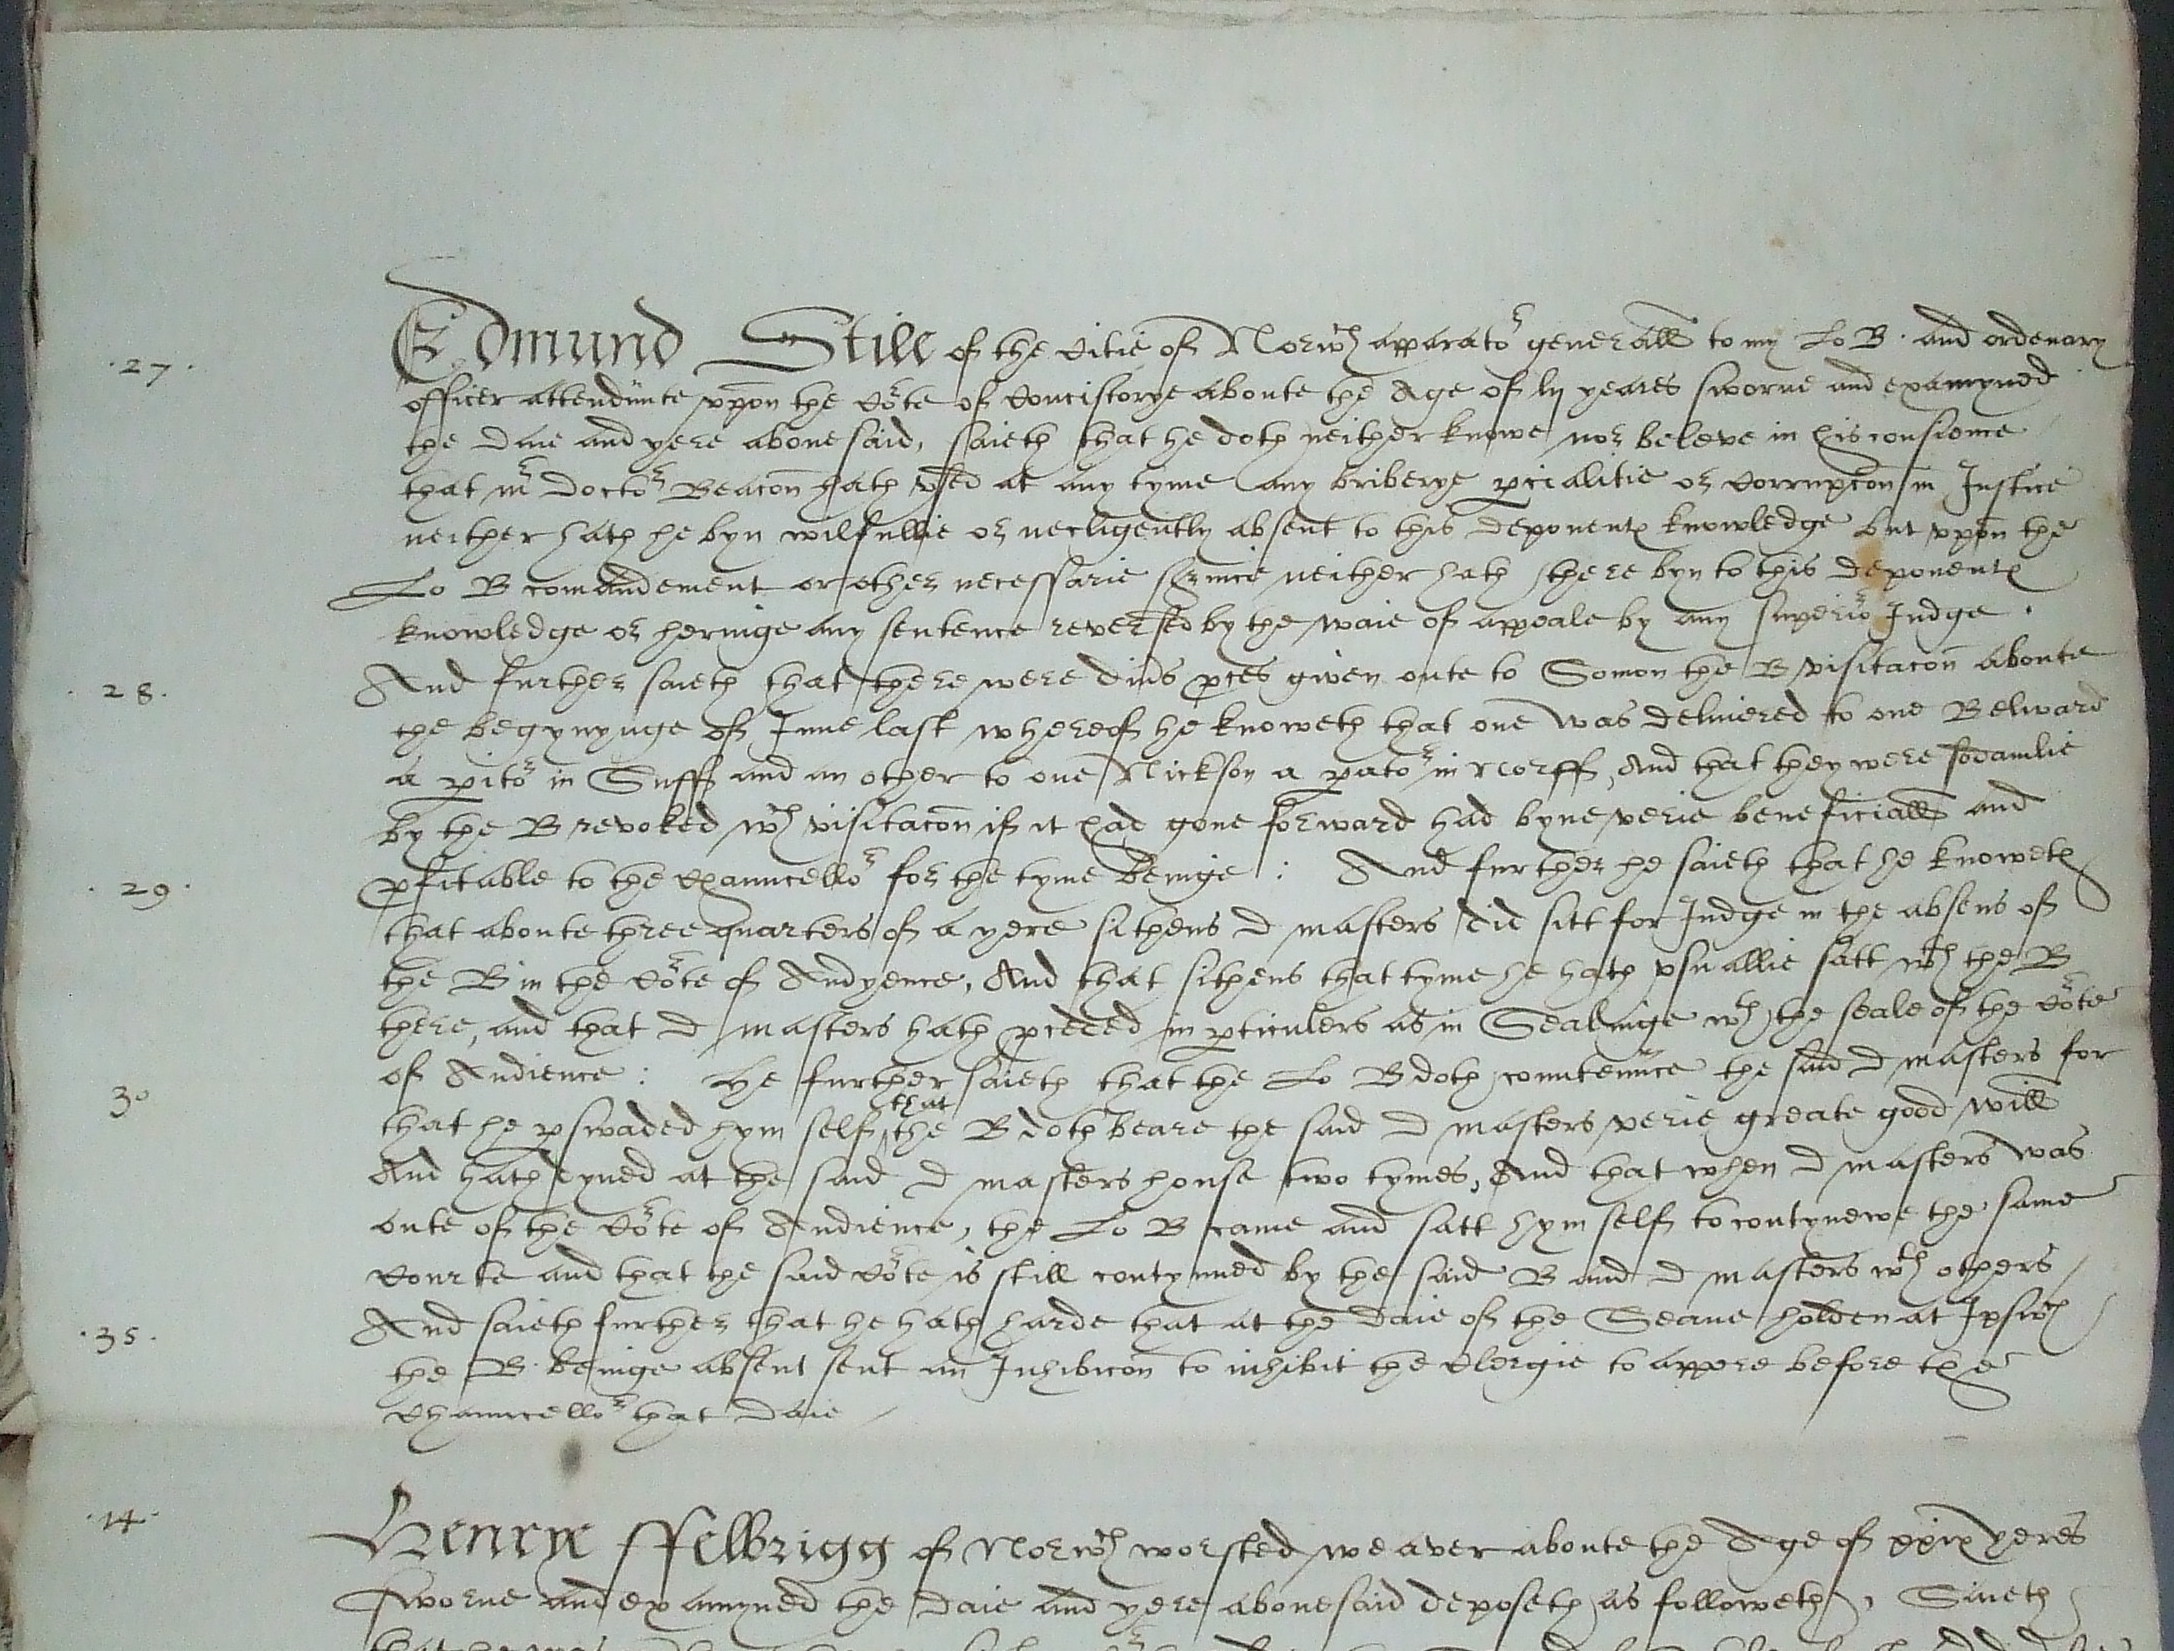 .27. Edmund Still of the Citie of Norwch apparator generall to my Lo B. and ordenary
officer attendunte vpon the Corte of Concistorye aboute the Age of lij yeares sworne and examyned
the daie and yere abouesaid, saieth that he doth neither knowe nor beleve in his consience
that mr doctor Beacon hath vsed at any tyme any briberye pcialitie or Corrupcon in Justice
neither hath he byn wilfullie or necligently absent to this deponents knowledge but vpon the
Lo B comandement or other necessarie seruice neither hath there byn to this deponents
knowledge or heringe any sentence reversed by the waie of appeale by any superior Judge .
.28. And further saieth that there were dius pces given oute to Somon the B visitacon aboute
the begynynge of June last whereof he knoweth that one was deliuered to one Belward
a pitor in Suff and an other to one Nickson a pator in Norff, And that they were sodainlie
by the B revoked wch visitacon if it had gone forward had byne verie beneficiall and
.29. pfitable to the Chauncellor for the tyme beinge : And further he saieth that he knoweth
that aboute three quarters of a yere sithens D masters did sitt for Judge in the absens of
the B in the Corte of Audyence, And that sithens that tyme he hath vsuallie satt wth the B
there, and that D masters hath pceded in pticulers as in Sealinge wth the seale of the Corte
30 of Audience : He further saieth that the Lo B doth countenuce the said D masters for
that he pswaded hym self that the B doth beare the said D masters verie greate good will
And hath dyned at the said D masters house two tymes, And that when D masters was
oute of the Corte of Audience, the Lo B came and satt hym self to contynewe the same
Courte and that the said Corte is still contynued by the said B and D masters wth others
.35. And saieth further that he hath harde that at the daie of the Seane holden at Ipswch
the B. beinge absent sent an Inhibicon to inhibit the Clergie to appere before the
Chauncellor that daie
.14. Henrye ffelbrigg of Norwch worsted weaver aboute the Age of xxix yeres
sworne and examyned the daie and yere abouesaid deposeth as followeth, Saieth
that he was